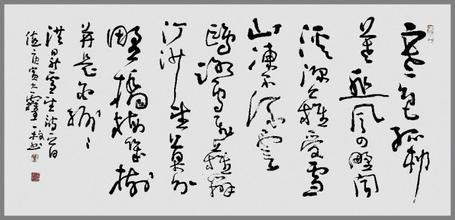 寒色孤村
暮悲风四野闻
溪深难受雪
山冻不流云
鸥鹭飞难辨
汀洲望莫分
野桥梅几树
并是白纷々
洪昇雪望诗